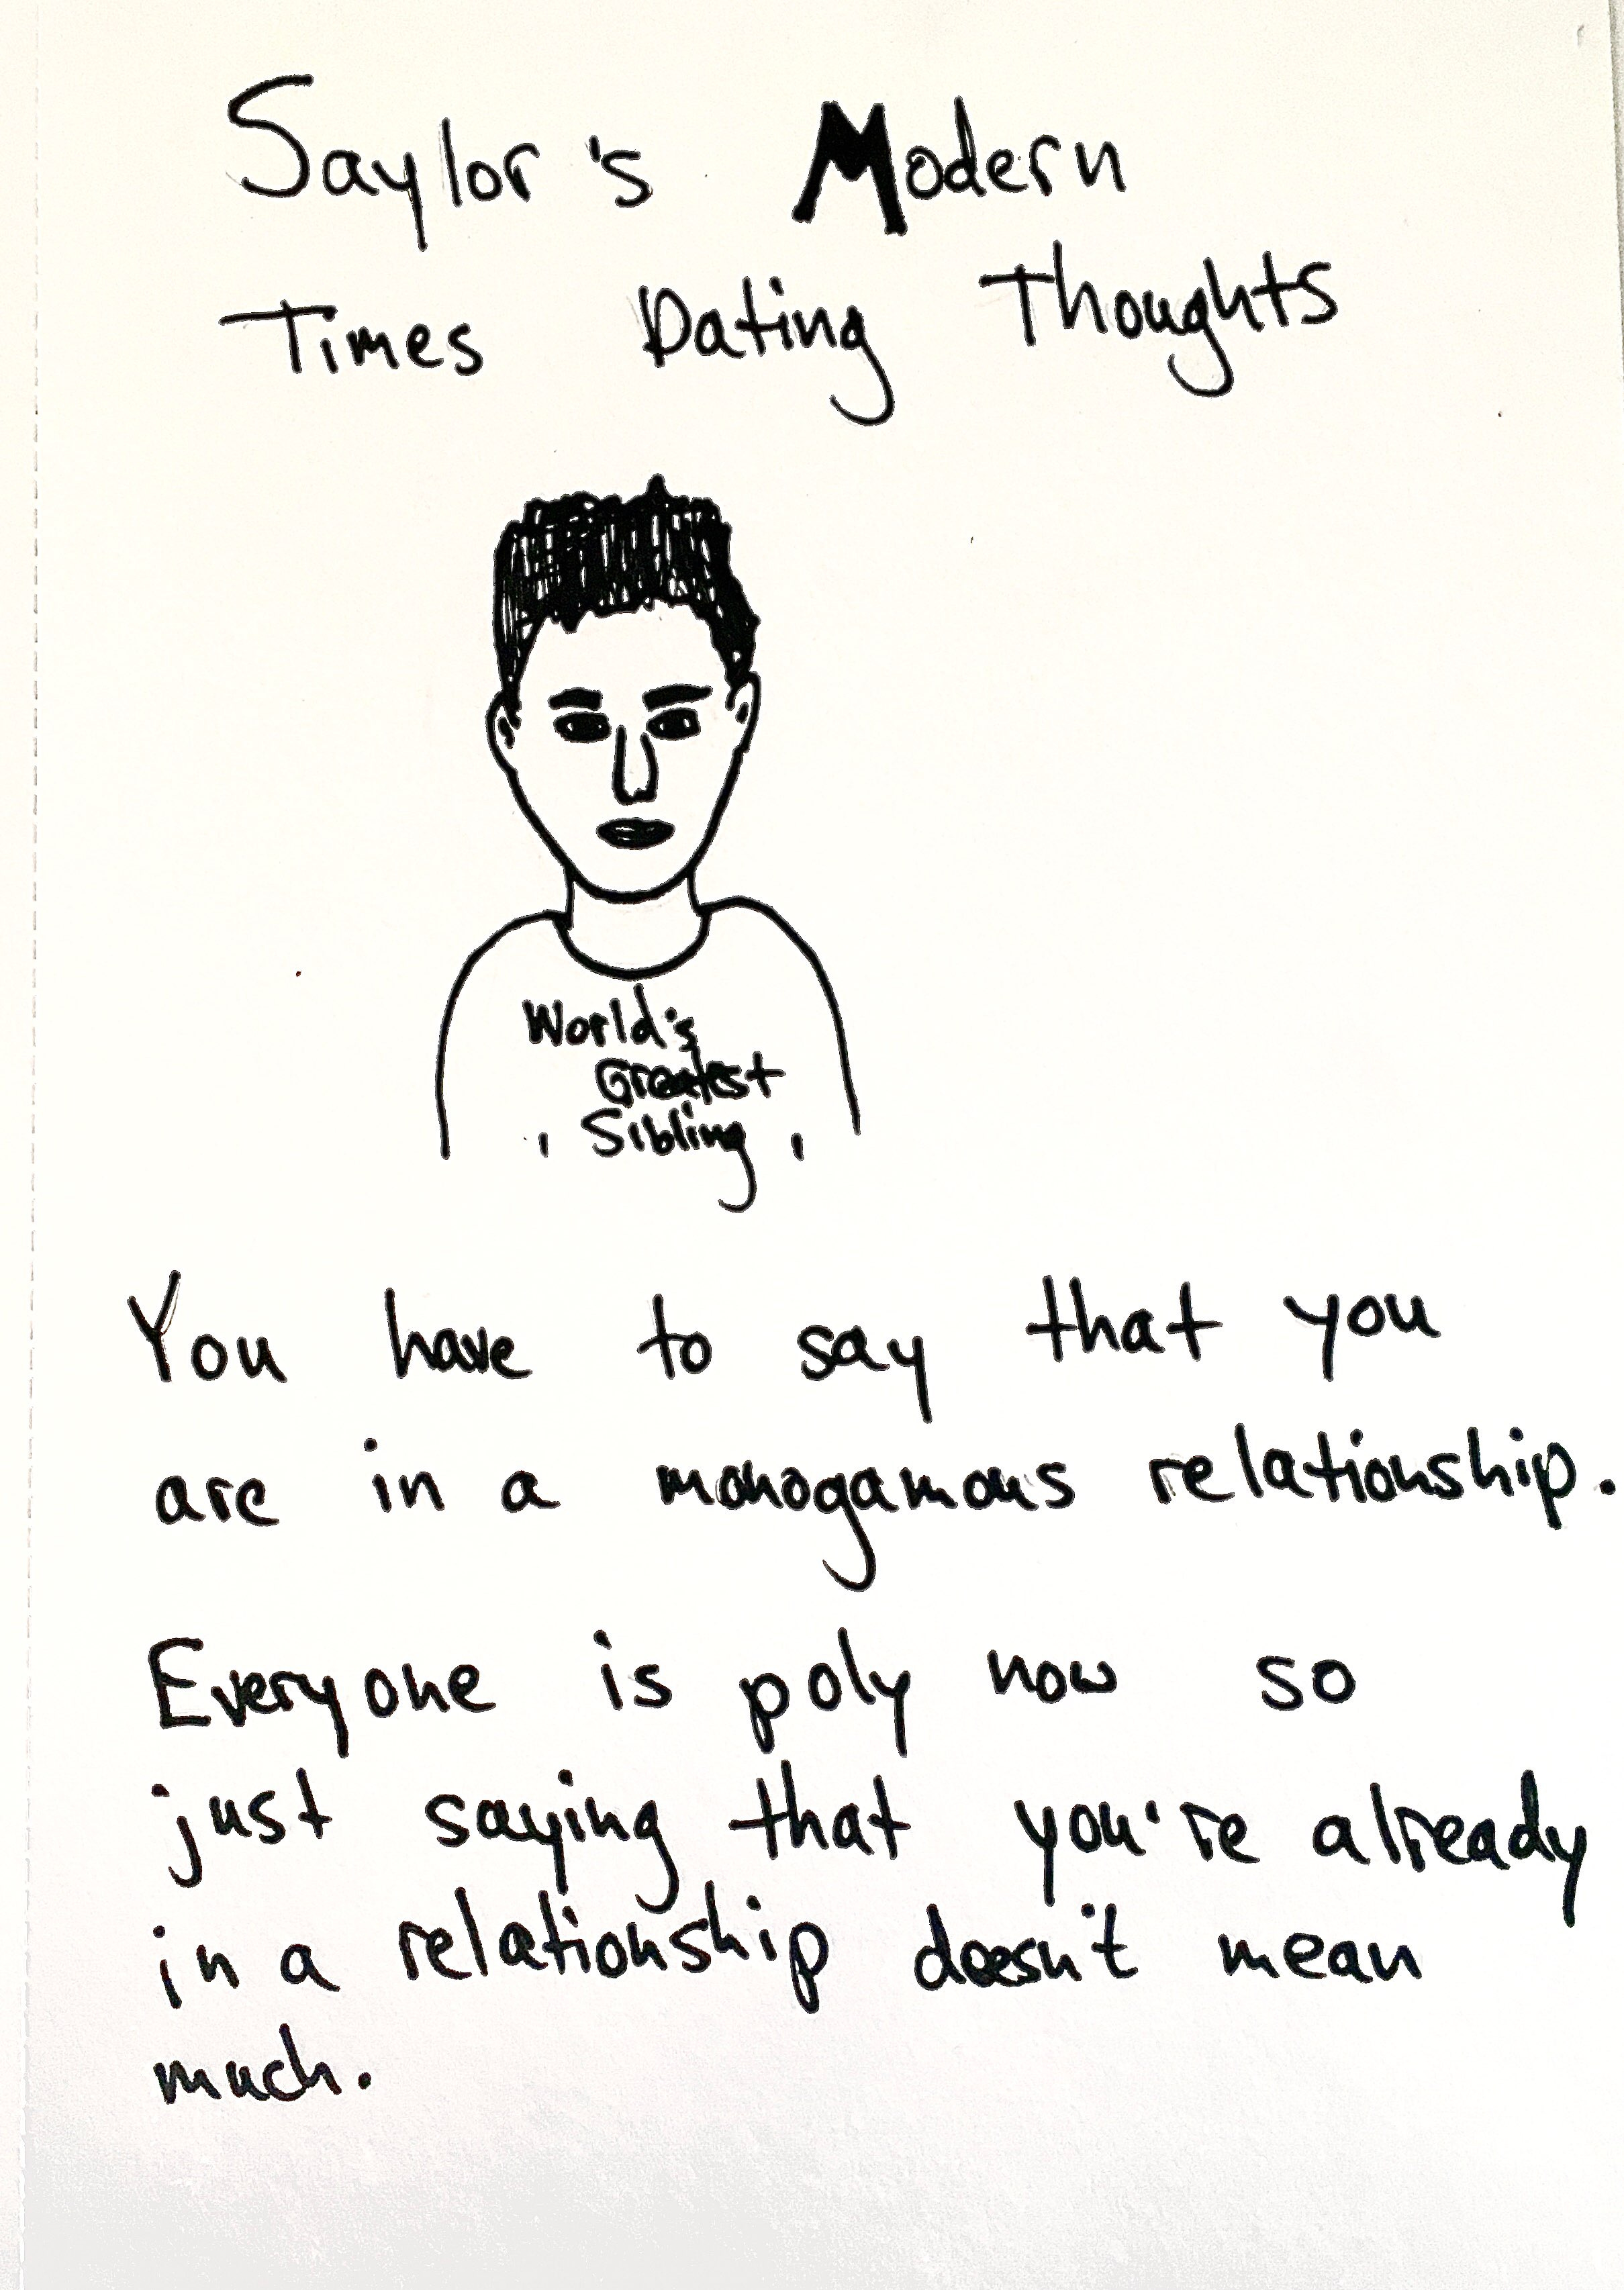 Saylor's Modern
Times Dating Thoughts
World's
Greatest
Sibling
You have to say that you
are in a monogamous relationship.
Everyone is poly now so
just saying that you're already
in a relationship doesn't mean
much.